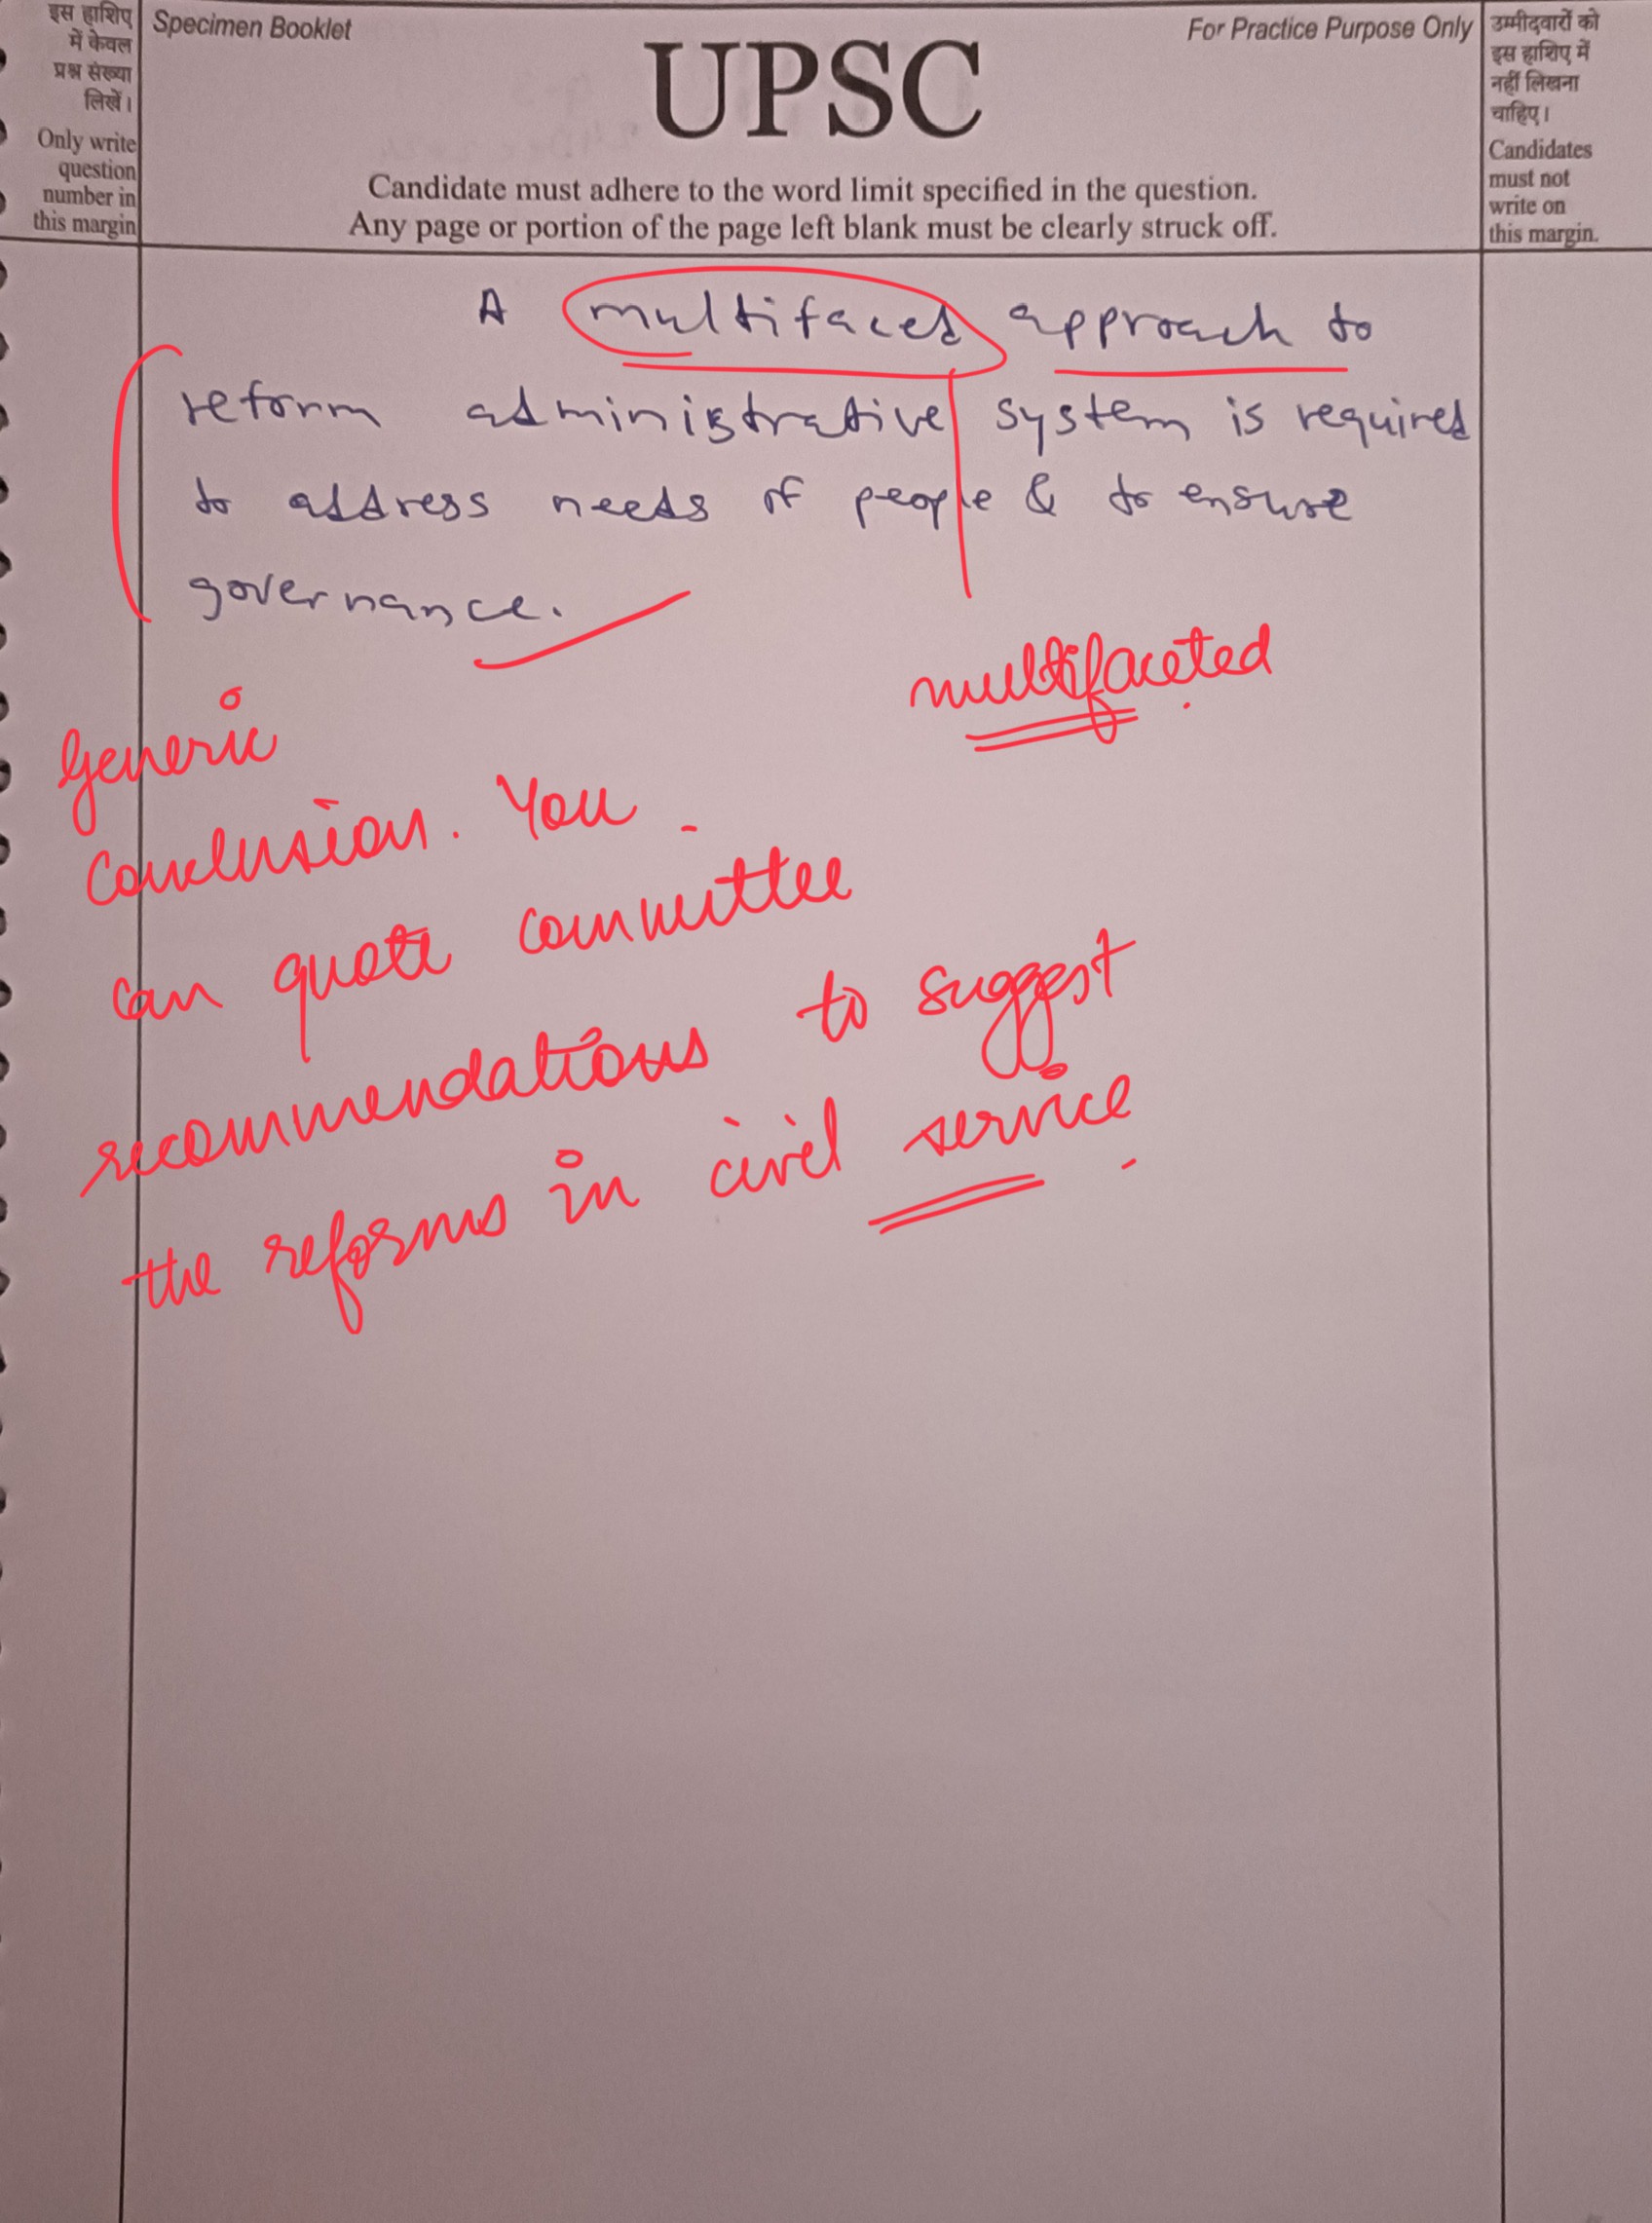 इस हाशिए
में केवल
प्रश्न संख्या
लिखें।
Only write
question
number in
this margin
Specimen Booklet
For Practice Purpose Only
UPSC
Candidate must adhere to the word limit specified in the question.
Any page or portion of the page left blank must be clearly struck off.
उम्मीदवारों को
इस हाशिए में
नहीं लिखना
चाहिए।
Candidates
must not
write on
this margin.
A multifaced approach to
reform administrative system is required
to address needs of people & to ensure
governance.
multifaceted
Generic
Conclusion. You
can quote committee
recommendations to suggest
the reforms in civil service.